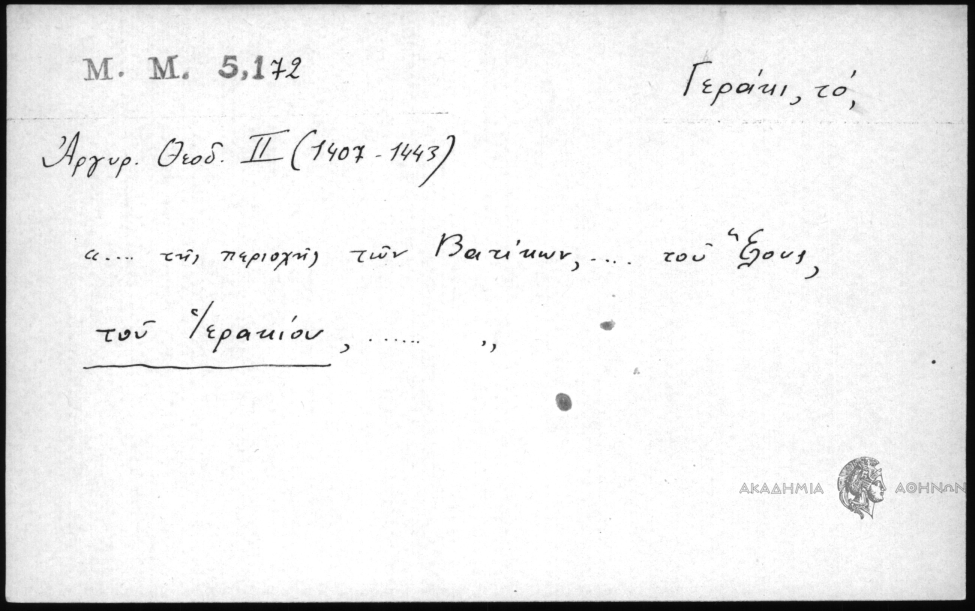 Μ. Μ. 5,172
Γεράκι, τό,
Ἀργυρ. Θεοδ. II (1407-1443)
«.... τῆς περιοχῆς τῶν Βατίκων, .... τοῦ Ἕλους,
τοῦ Ἱερακίου, ...... „
ΑΚΑΔΗΜΙΑ ΑΘΗΝΩΝ